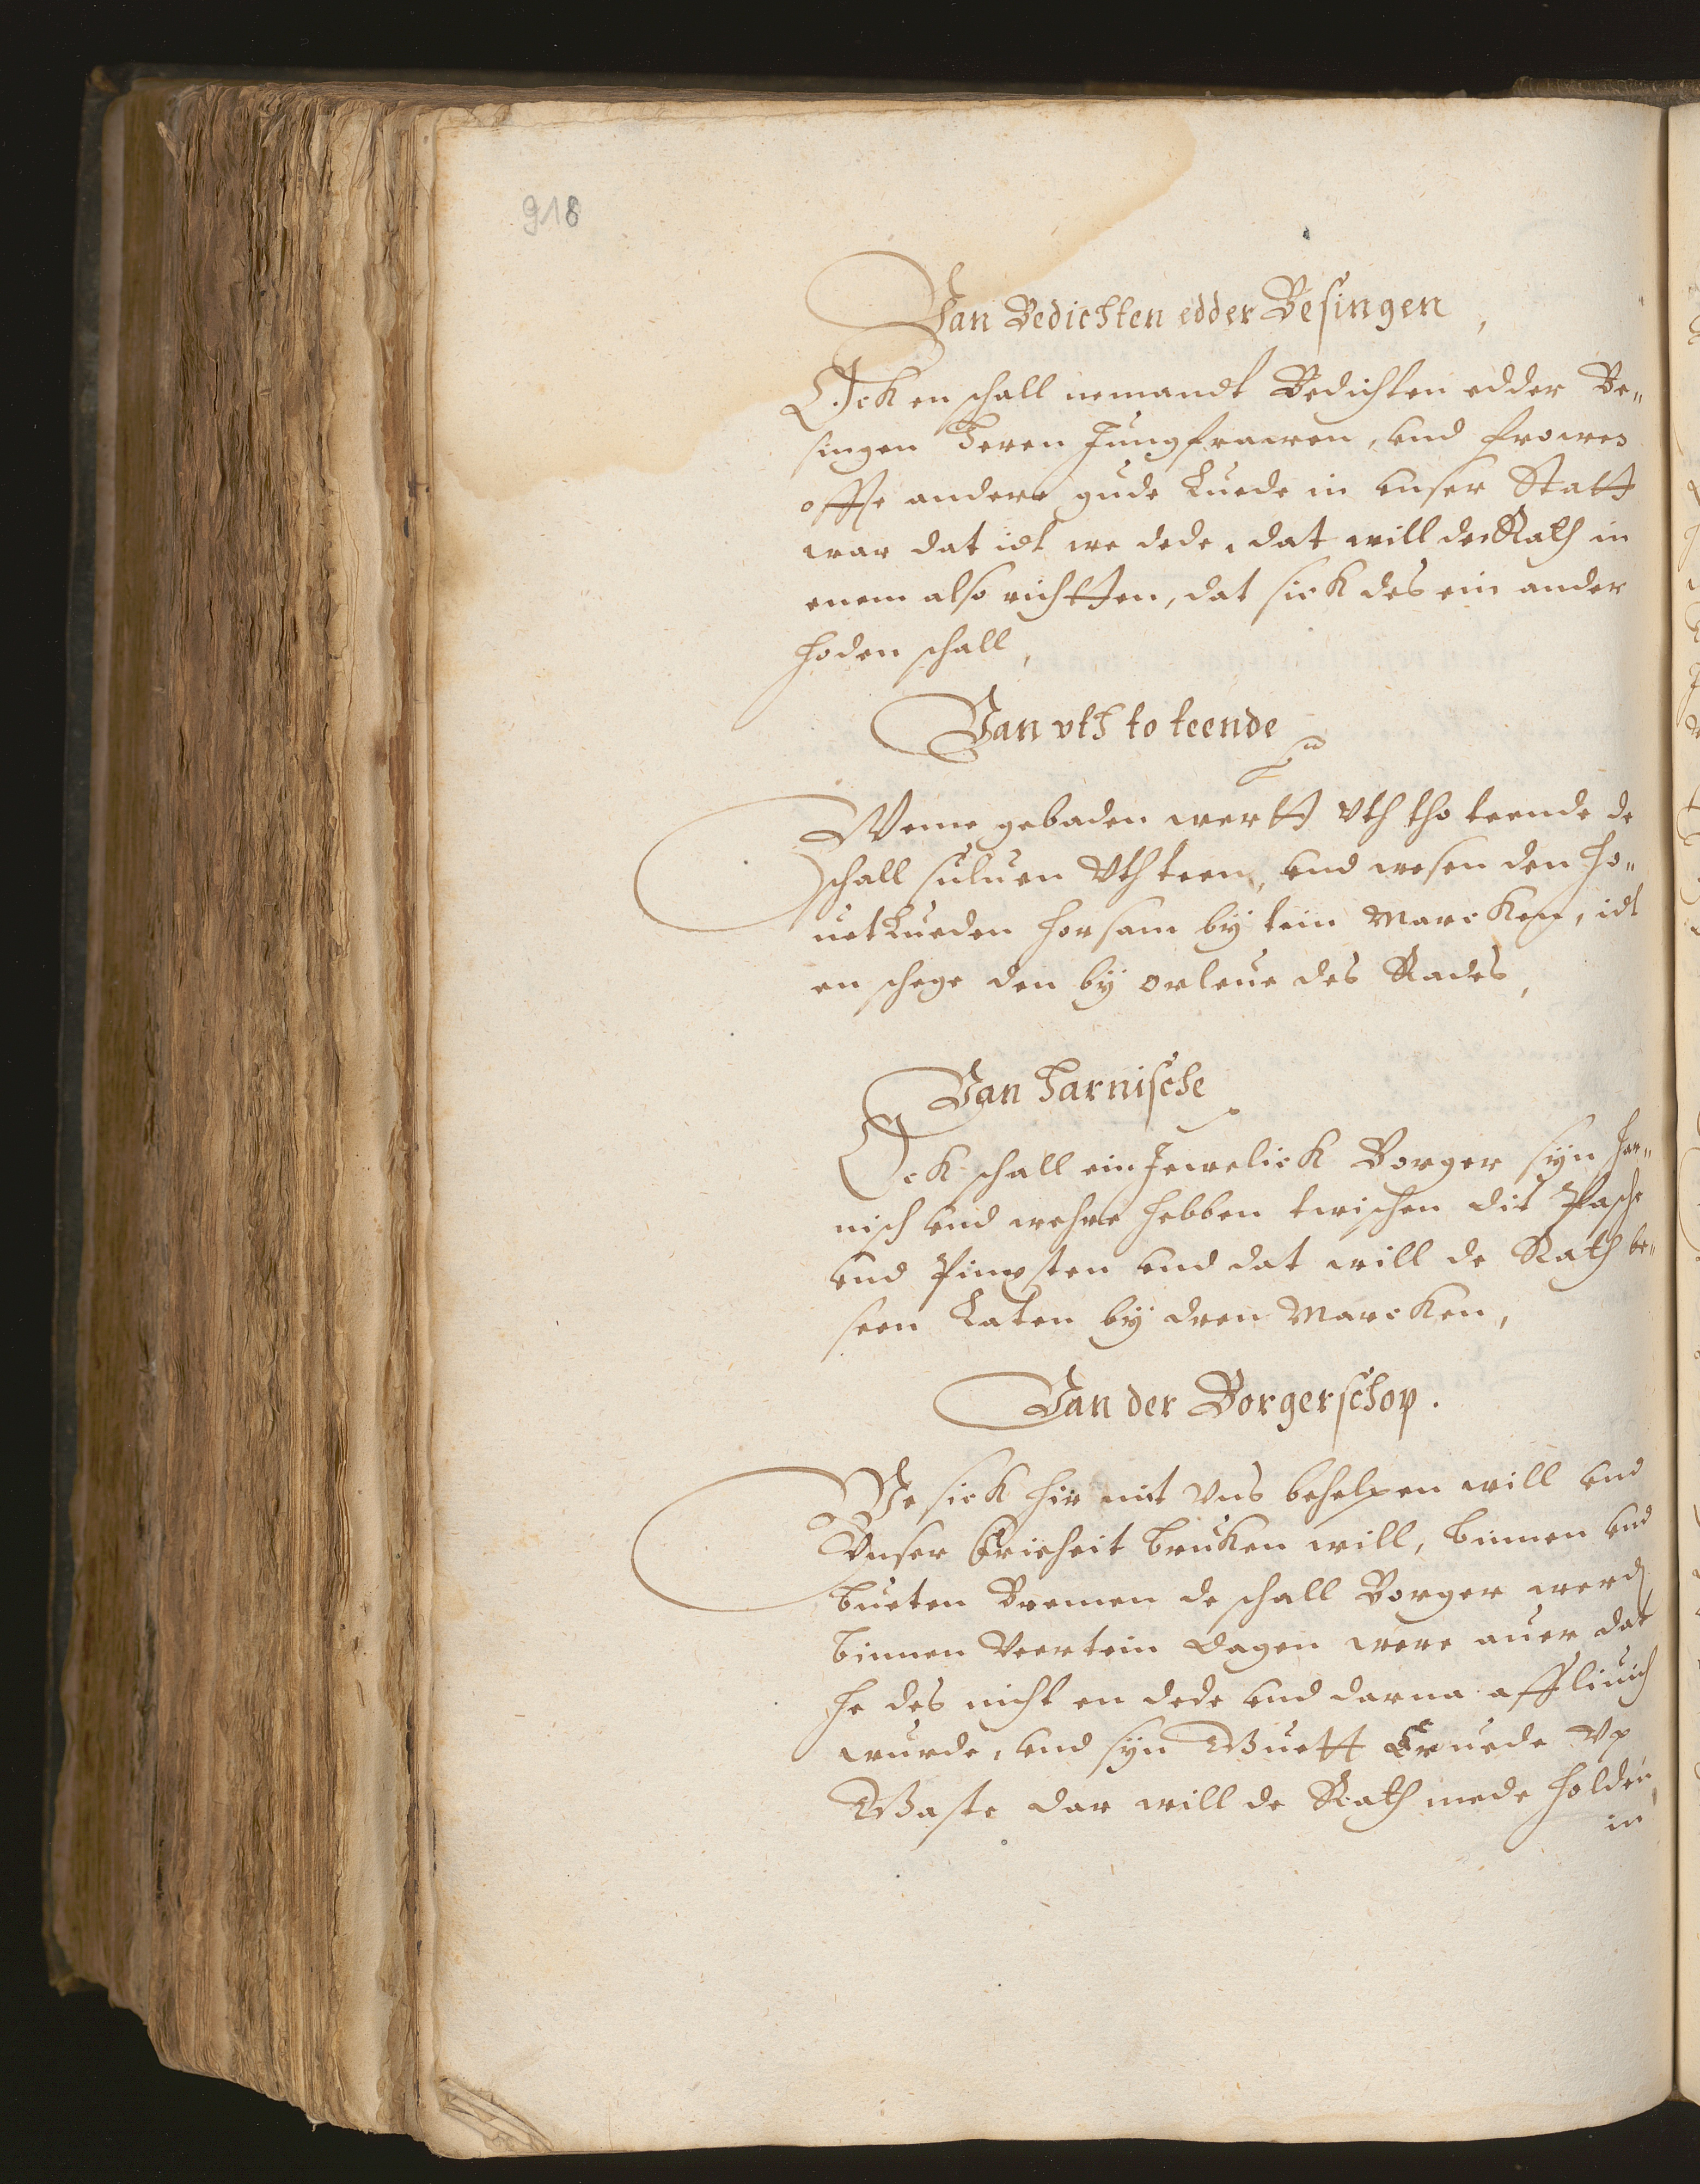 918
Van Bedichten edder Besingen,
Ock en schall nemandt Bedichten edder Be„
singen Heren Jungfrawen, und frowen
offte andere gude Luede in unser Statt
war dat idt we dede, dat will de Rath in
enem also richtten, dat sick des ein ander
hoden schall,
Van vth to teende
Weme gebaden wertt Vth tho teende de
schall suluen Vth teen, und wesen den Ho„
uetLueden horsam by tein Marcken, idt
en schege den by orleue des Rades,
Van Harnische
Ock schall ein Jewelick Borger syn Har„
nisch und wehre hebben twischen dit Pasche
und Pingsten und dat will de Rath be„
seen Laten by dren Marcken,
Van der Borgerschop.
We sick hir mit Vns behelpen will und
Unser Frieheit bruken will, binnen und
bueten Bremen de schall Borger werd
binnen Veertein dagen were auer dat
he des nicht en dede und darna affliuich
wurde, und syn Guett Eruede Vp
Gaste dar will de Rath mede holden,
in